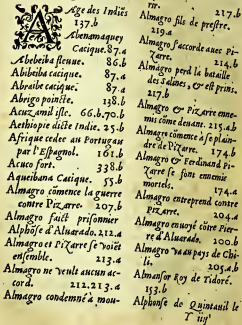 Age des Indiës
137.b
Abenamaquey
Cacique. 87.a
Abebeiba fleuue. 86.b
Abibeiba cacique. 87.a
Abraibe cacique. 87.a
Abrigo poincte. 138.b
Acuzamil isle. 66.b.70.b
Aethiopie dicte Indie. 25.b
Afrique cedee au Portugau
par l'Espagnol. 161.b
Acuco fort. 338.b
Aqueibana Cacique. 55.b
Almagro cōmence la guerre
contre Pizarre. 207.b
Almagro faict prisonnier
Alphōse d'Aluarado. 212.a
Almagro et Pizarre se voiēt
ensemble. 213.a
Almagro ne veult aucun ac-
cord. 212.213.a
Almagro condemné à mou-
rir. 217.b
Almagro fils de prestre.
219.a
Almagro s'accorde auec Pi-
zarre. 214.a
Almagro perd la bataille
des Salines, & est prins.
217.b
Almagro & Pizarre enne-
mis cōme deuant. 215.a.b
Almagro cōmence à se plain-
dre de Pizarre. 174.b
Almagro & Ferdinand Pi-
zarre se sont ennemis
mortels. 174.a
Almagro entreprend contre
Pizarre. 204.a
Almagro enuoyé cōtre Pier-
re d'Aluarado. 200.b
Almagro va au pays de Chi-
li. 205.a.b
Almansor Roy de Tidoré.
153.b
Alphonse de Quintauil le
T iiij